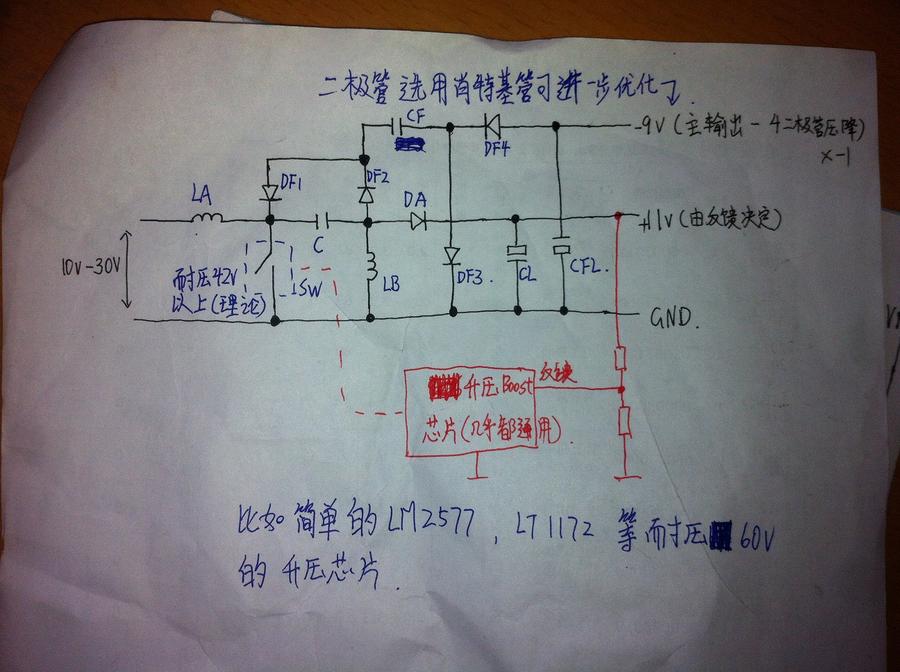 二极管选用肖特基管可进一步优化
CF
-9V (主输出-4二极管压降)
x-1
DF4
DF1
DF2
LA
DA
+11V (由反馈决定)
C
10V-30V
耐压42V
以上(理论)
SW
LB
DF3.
CL
CFL.
GND.
反馈
升压Boost
芯片(几乎都通用).
比如简单的LM2577, LT1172 等耐压60V
的升压芯片.